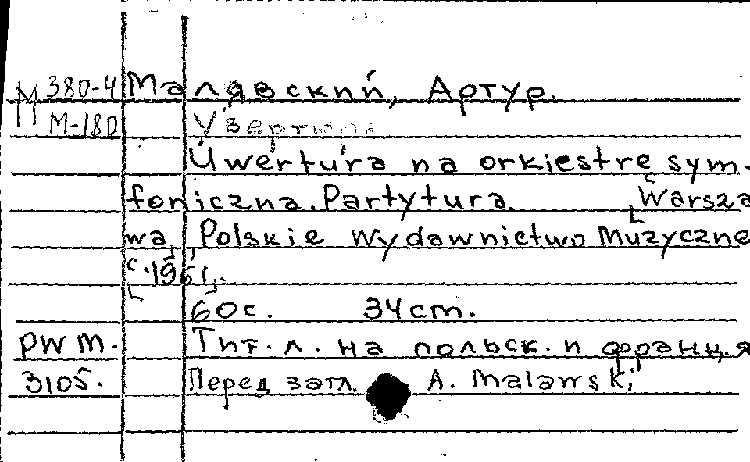 М 380-4 Малявский, Артур.
М-180 Увертюра
Uwertura na orkiestrę sym-
foniczna. Partytura. [Warsza
wa], Polskie Wydawnictwo Muzyczne
[с. 1961].
60 с. 34 cm.
PWM. Тит. л. на польск. и франц. я
3105. Перед загл. A. Malawski